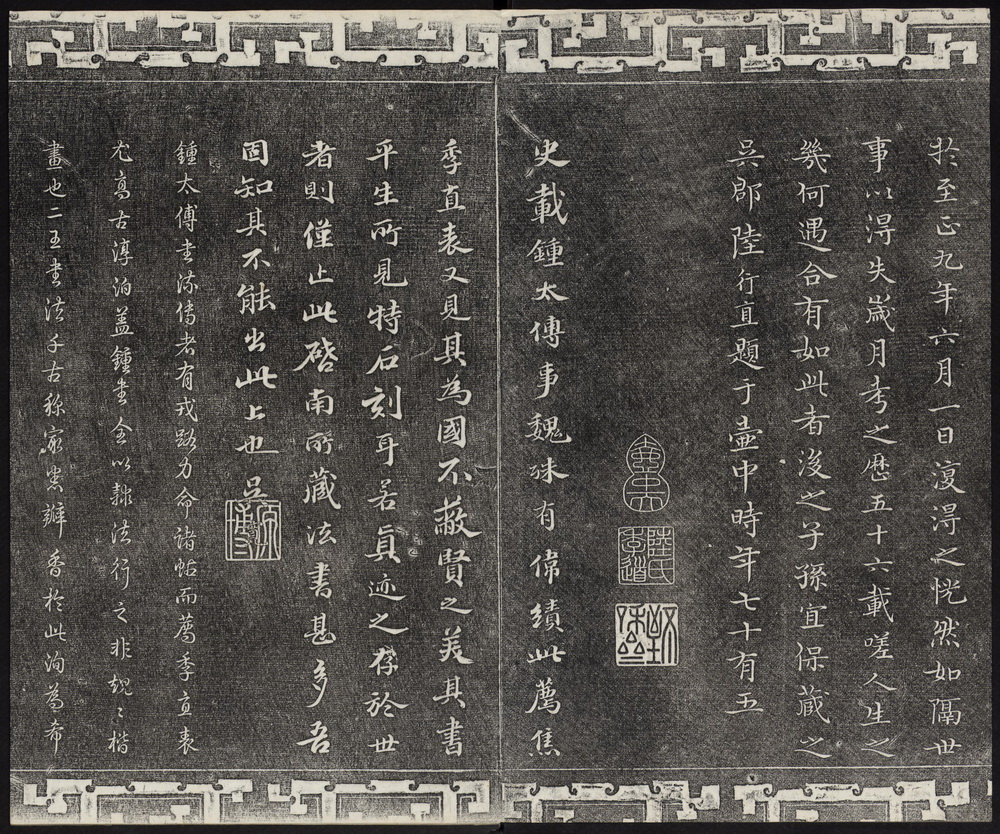 於至正九年六月一日復得之恍然如隔世
事以得失歲月考之歷五十六載嗟人生之
幾何遇合有如此者後之子孫宜保藏之
吳郡陸行直題于壺中時年七十有五
壺天
陸氏季道
史載鍾太傅事魏殊有偉績此薦焦
季直表又見其為國不蔽賢之美其書
平生所見特石刻耳若真迹之存於世
者則僅止此啓南所藏法書甚多吾
固知其不能出此上也吳
原博
鍾太傅書流傳者有戎路力命諸帖而薦季直表
尤高古淳泊蓋鍾書全以隸法行之非規〻楷
畫也二王書法千古稱家瓣香於此洵為希